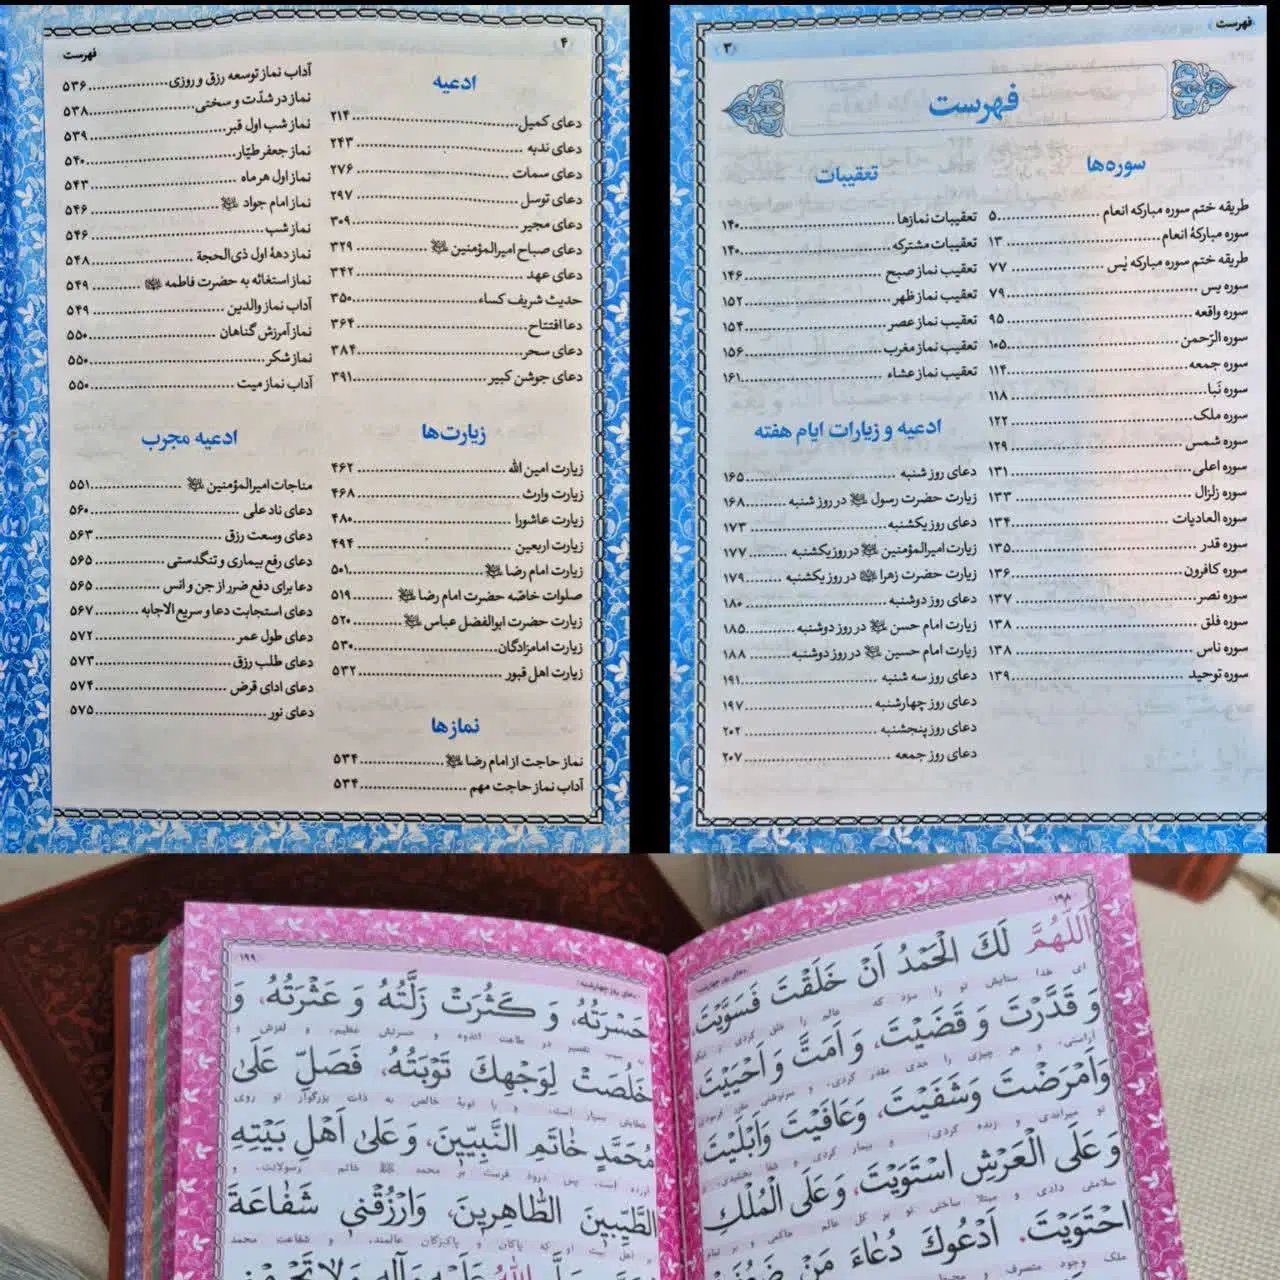 فهرست
۳
فهرست
سوره‌ها
طریقه ختم سوره مبارکه انعام ........ ۵
سوره مبارکهٔ انعام ........ ۱۳
طریقه ختم سوره مبارکه یٰس ........ ۷۷
سوره یس ........ ۷۹
سوره واقعه ........ ۹۵
سوره الرّحمن ........ ۱۰۵
سوره جمعه ........ ۱۱۴
سوره نَبا ........ ۱۱۸
سوره ملک ........ ۱۲۲
سوره شمس ........ ۱۲۹
سوره اعلی ........ ۱۳۱
سوره زلزال ........ ۱۳۳
سوره العادیات ........ ۱۳۴
سوره قدر ........ ۱۳۵
سوره کافرون ........ ۱۳۶
سوره نصر ........ ۱۳۷
سوره فلق ........ ۱۳۸
سوره ناس ........ ۱۳۸
سوره توحید ........ ۱۳۹
تعقیبات
تعقیبات نمازها ........ ۱۴۰
تعقیبات مشترکه ........ ۱۴۰
تعقیب نماز صبح ........ ۱۴۶
تعقیب نماز ظهر ........ ۱۵۲
تعقیب نماز عصر ........ ۱۵۴
تعقیب نماز مغرب ........ ۱۵۶
تعقیب نماز عشاء ........ ۱۶۱
ادعیه و زیارات ایام هفته
دعای روز شنبه ........ ۱۶۵
زیارت حضرت رسول ﷺ در روز شنبه ........ ۱۶۸
دعای روز یکشنبه ........ ۱۷۳
زیارت امیرالمؤمنین در روز یکشنبه ........ ۱۷۷
زیارت حضرت زهرا در روز یکشنبه ........ ۱۷۹
دعای روز دوشنبه ........ ۱۸۰
زیارت امام حسن در روز دوشنبه ........ ۱۸۵
زیارت امام حسین در روز دوشنبه ........ ۱۸۸
دعای روز سه شنبه ........ ۱۹۱
دعای روز چهارشنبه ........ ۱۹۷
دعای روز پنجشنبه ........ ۲۰۲
دعای روز جمعه ........ ۲۰۷
۴
فهرست
ادعیه
دعای کمیل ........ ۲۱۴
دعای ندبه ........ ۲۴۳
دعای سمات ........ ۲۷۶
دعای توسل ........ ۲۹۷
دعای مجیر ........ ۳۰۹
دعای صباح امیرالمؤمنین ........ ۳۲۹
دعای عهد ........ ۳۴۲
حدیث شریف کساء ........ ۳۵۰
دعا افتتاح ........ ۳۶۴
دعای سحر ........ ۳۸۴
دعای جوشن کبیر ........ ۳۹۱
زیارت‌ها
زیارت امین الله ........ ۴۶۲
زیارت وارث ........ ۴۶۸
زیارت عاشورا ........ ۴۸۰
زیارت اربعین ........ ۴۹۴
زیارت امام رضا ........ ۵۰۱
صلوات خاصّه حضرت امام رضا ........ ۵۱۹
زیارت حضرت ابوالفضل عباس ........ ۵۲۰
زیارت امامزادگان ........ ۵۳۰
زیارت اهل قبور ........ ۵۳۲
نمازها
نماز حاجت از امام رضا ........ ۵۳۴
آداب نماز حاجت مهم ........ ۵۳۴
آداب نماز توسعه رزق و روزی ........ ۵۳۶
نماز در شدّت و سختی ........ ۵۳۸
نماز شب اول قبر ........ ۵۳۹
نماز جعفر طیّار ........ ۵۴۰
نماز اول هر ماه ........ ۵۴۳
نماز امام جواد ........ ۵۴۶
نماز شب ........ ۵۴۶
نماز دههٔ اول ذی‌الحجة ........ ۵۴۸
نماز استغاثه به حضرت فاطمه ........ ۵۴۹
آداب نماز والدین ........ ۵۴۹
نماز آمرزش گناهان ........ ۵۵۰
نماز شکر ........ ۵۵۰
آداب نماز میت ........ ۵۵۰
ادعیه مجرب
مناجات امیرالمؤمنین ........ ۵۵۱
دعای ناد علی ........ ۵۶۰
دعای وسعت رزق ........ ۵۶۳
دعای رفع بیماری و تنگدستی ........ ۵۶۵
دعا برای دفع ضرر از جن و انس ........ ۵۶۵
دعای استجابت دعا و سریع الاجابه ........ ۵۶۷
دعای طول عمر ........ ۵۷۲
دعای طلب رزق ........ ۵۷۳
دعای ادای قرض ........ ۵۷۴
دعای نور ........ ۵۷۵
۱۹۸
اَللّٰهُمَّ لَكَ الْحَمْدُ اَنْ خَلَقْتَ فَسَوَّيْتَ،
ای خدا ستایش تو را سزد که عالم را خلق کردی و نیکو
وَ قَدَّرْتَ وَ قَضَيْتَ، وَ اَمَتَّ وَ اَحْيَيْتَ،
آراستی، و هر چیزی را حدی مقدر کردی،
وَ اَمْرَضْتَ وَ شَفَيْتَ، وَ عَافَيْتَ وَ اَبْلَيْتَ،
تو میراندی و زنده کردی، و بیمار کردی و شفا بخشیدی، و
وَ عَلَى الْعَرْشِ اسْتَوَيْتَ، وَ عَلَى الْمُلْكِ
سلامتی دادی و مبتلا ساختی و تو بر کل عالم حاکمی و بر تمام
احْتَوَيْتَ. اَدْعُوكَ دُعٰاءَ مَنْ ضَعُفَتْ
ملک وجود متصرف و محیط
۱۹۹
دعای روز چهارشنبه
حَسْرَتُهُ، وَ كَثُرَتْ زَلَّتُهُ وَ عَثْرَتُهُ، وَ
به سبب تقصیر در طاعت اندوه و حسرتش عظیم، و لغزش و
خَلُصَتْ لِوَجْهِكَ تَوْبَتُهُ، فَصَلِّ عَلَى
خطایش بسیار است، و با توبهٔ خالص به ذات بزرگوار تو روی
مُحَمَّدٍ خٰاتَمِ النَّبِيّٖينَ، وَ عَلىٰ اَهْلِ بَيْتِهِ
آورده است. پس درود فرست بر محمد ﷺ خاتم رسولانت، و
الطَّيِّبينَ الطّٰاهِرينَ، وَ ارْزُقْنى شَفٰاعَةَ
بر اهل بیت او که پاکان و پاکیزگان عالمند، و شفاعت محمد